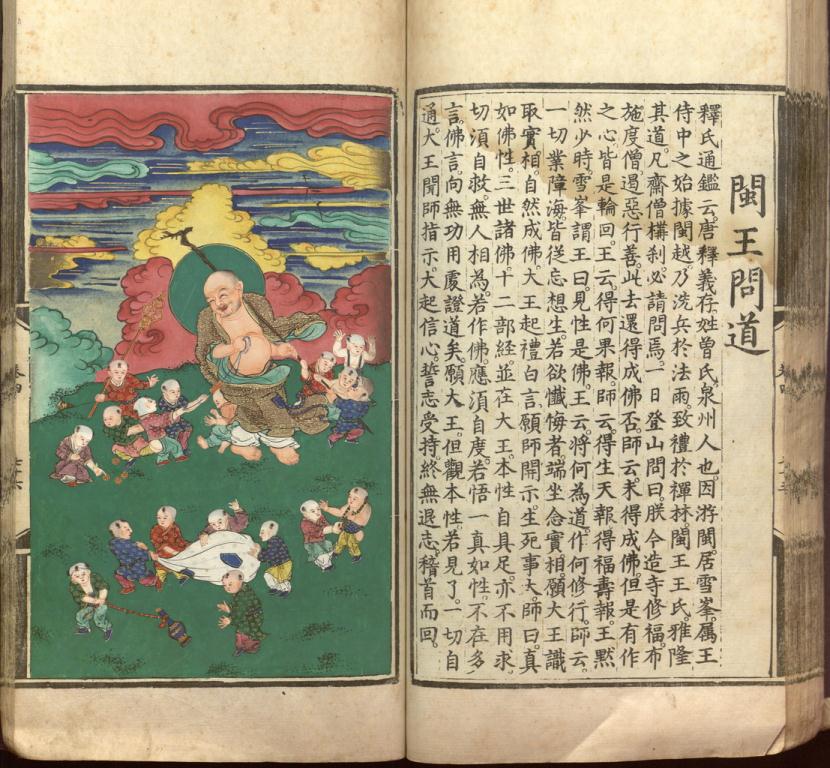 閩王問道
釋氏通鑑云。唐釋義存姓曾氏泉州人也。因游閩居雪峯。屬王
侍中之始據閩越乃洗兵於法雨。致禮於禪林閩王王氏。雅隆
其道。凡齋僧構刹必請問焉。一日登山問曰。朕今造寺修福。布
施度僧。遏惡行善。此去還得成佛否。師云。未得成佛。但是有作
之心皆是輪回。王云。得何果報。師云。得生天報得福壽報。王黙
然少時。雪峯謂王曰。見性是佛。王云。將何為道。作何修行。師云。
一切業障海。皆從忘想生。若欲懺悔者。端坐念實相。願大王識
取實相。自然成佛。大王起禮白言。願師開示。生死事大。師曰。真
如佛性。三世諸佛。十二部經並在大王。本性自具足。亦不用求。
切須自救。無人相為。若作佛。應須自度。若悟一真如性。不在多
言。佛言。向無功用處證道矣。願大王。但觀本性。若見了。一切自
通。大王聞師指示。大起信心。誓志受持。終無退志。稽首而回。